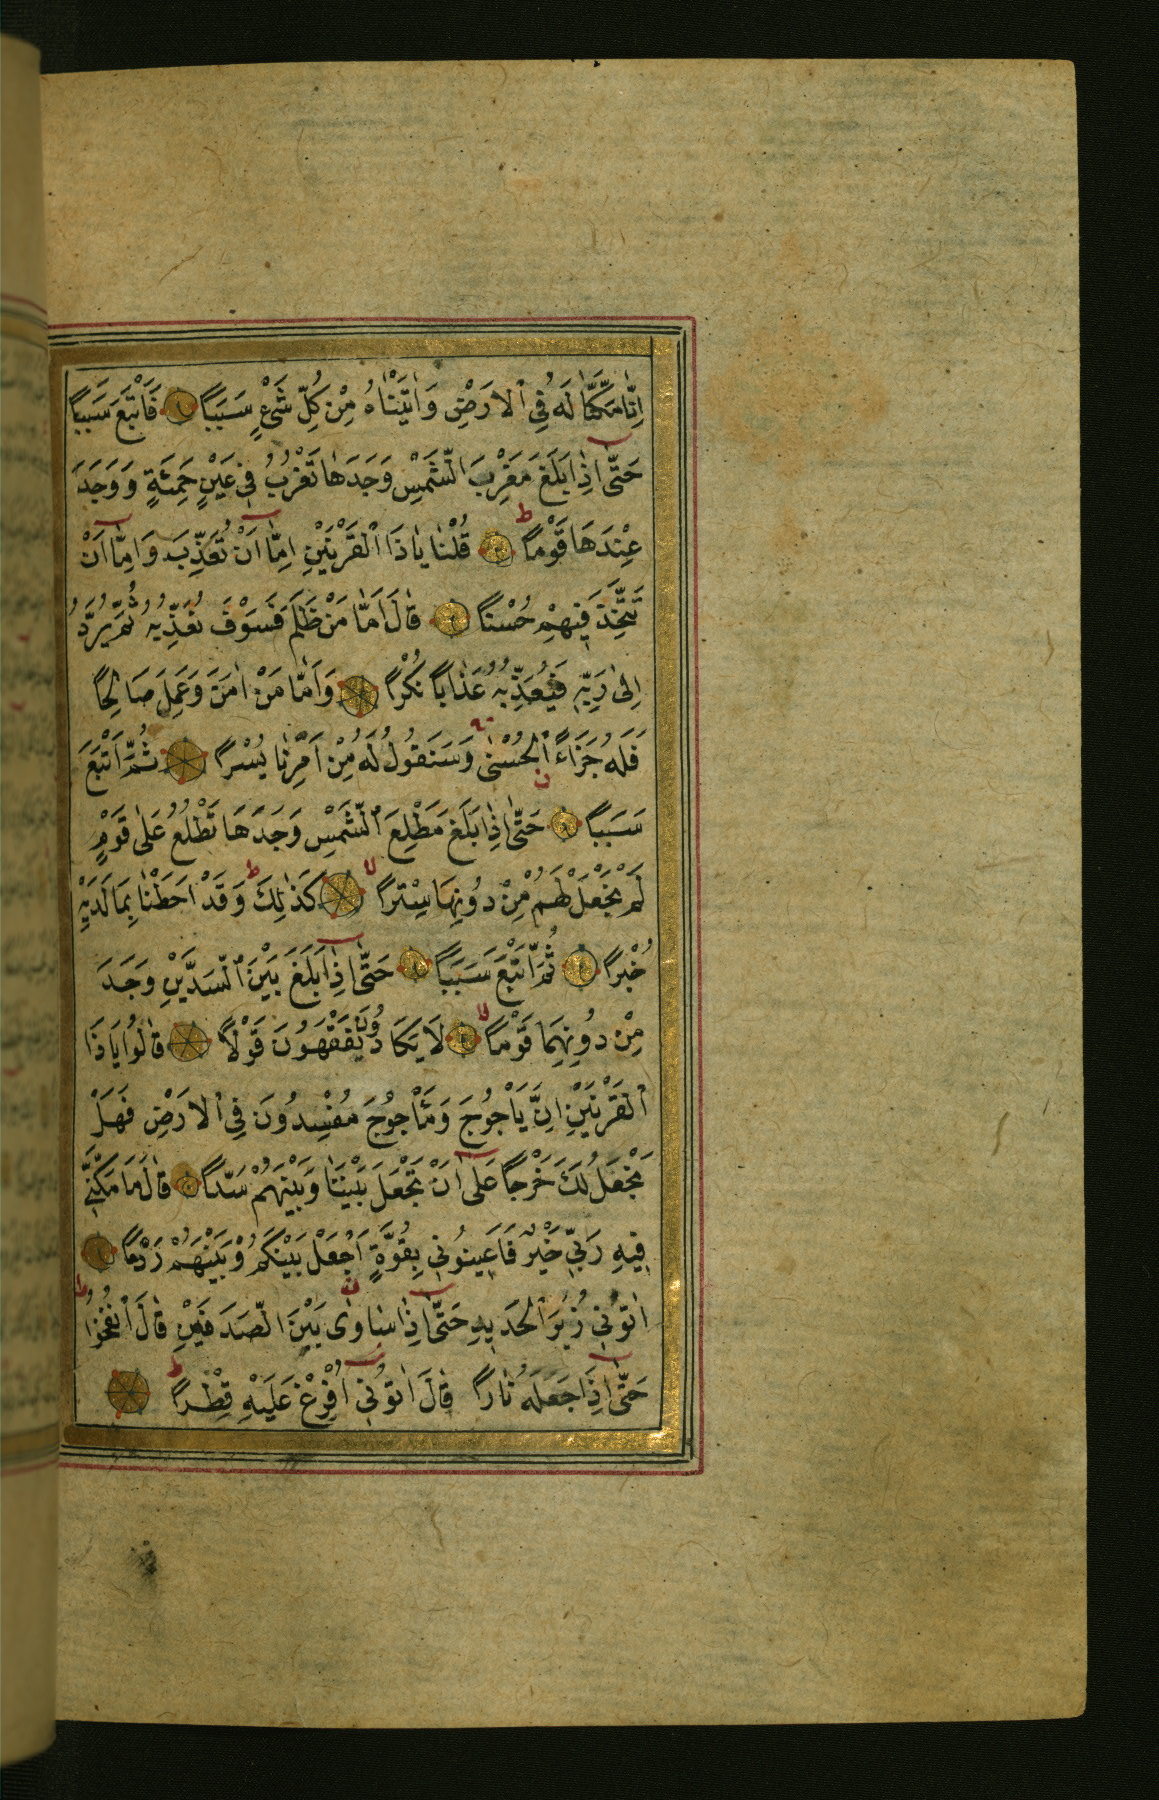 اِنَّا مَكَّنَّا لَهُ فِى ٱلْاَرْضِ وَاٰتَيْنَاهُ مِنْ كُلِّ شَىْءٍ سَبَبًا فَاَتْبَعَ سَبَبًا
حَتّٰى اِذَا بَلَغَ مَغْرِبَ الشَّمْسِ وَجَدَهَا تَغْرُبُ فِى عَيْنٍ حَمِئَةٍ وَوَجَدَ
عِنْدَهَا قَوْمًا قُلْنَا يَا ذَا ٱلْقَرْنَيْنِ اِمَّا اَنْ تُعَذِّبَ وَاِمَّا اَنْ
تَتَّخِذَ فِيهِمْ حُسْنًا قَالَ اَمَّا مَنْ ظَلَمَ فَسَوْفَ نُعَذِّبُهُ ثُمَّ يُرَدُّ
اِلٰى رَبِّهِ فَيُعَذِّبُهُ عَذَابًا نُكْرًا وَاَمَّا مَنْ اٰمَنَ وَعَمِلَ صَالِحًا
فَلَهُ جَزَاءً ٱلْحُسْنٰى وَسَنَقُولُ لَهُ مِنْ اَمْرِنَا يُسْرًا ثُمَّ اَتْبَعَ
سَبَبًا حَتّٰى اِذَا بَلَغَ مَطْلِعَ ٱلشَّمْسِ وَجَدَهَا تَطْلُعُ عَلٰى قَوْمٍ
لَمْ نَجْعَلْ لَهُمْ مِنْ دُونِهَا سِتْرًا كَذٰلِكَ وَقَدْ اَحَطْنَا بِمَا لَدَيْهِ
خُبْرًا ثُمَّ اَتْبَعَ سَبَبًا حَتّٰى اِذَا بَلَغَ بَيْنَ ٱلسَّدَّيْنِ وَجَدَ
مِنْ دُونِهِمَا قَوْمًا لَا يَكَادُونَ يَفْقَهُونَ قَوْلًا قَالُوا يَا ذَا
ٱلْقَرْنَيْنِ اِنَّ يَأْجُوجَ وَمَأْجُوجَ مُفْسِدُونَ فِى ٱلْاَرْضِ فَهَلْ
نَجْعَلُ لَكَ خَرْجًا عَلٰى اَنْ تَجْعَلَ بَيْنَنَا وَبَيْنَهُمْ سَدًّا قَالَ مَا مَكَّنِّى
فِيهِ رَبِّى خَيْرٌ فَاَعِينُونِى بِقُوَّةٍ اَجْعَلْ بَيْنَكُمْ وَبَيْنَهُمْ رَدْمًا
اٰتُونِى زُبَرَ ٱلْحَدِيدِ حَتّٰى اِذَا سَاوٰى بَيْنَ الصَّدَفَيْنِ قَالَ ٱنْفُخُوا
حَتّٰى اِذَا جَعَلَهُ نَارًا قَالَ اٰتُونِى اُفْرِغْ عَلَيْهِ قِطْرًا